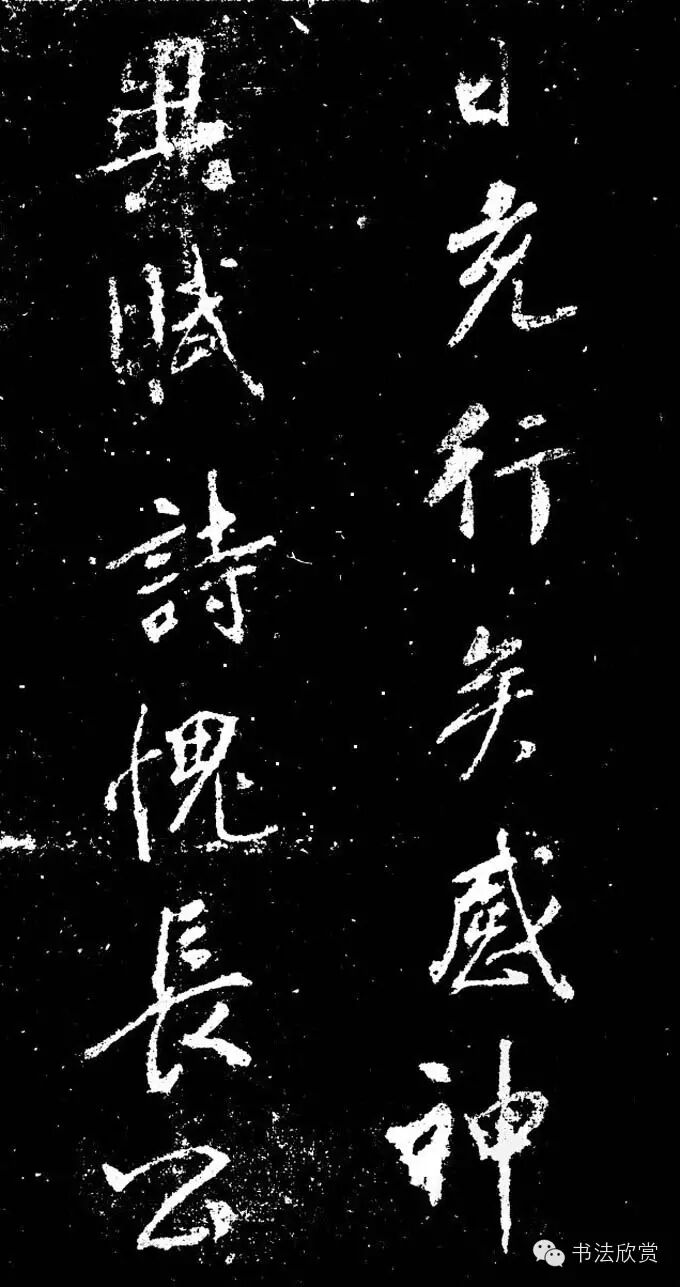 日克行矣感神
異賦詩愧長公
书法欣赏